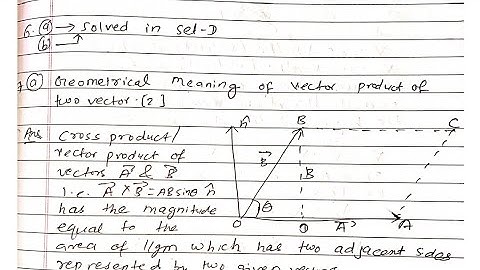 6. (a) → solved in set-D
(b)
7. (a) Geometrical meaning of vector product of
two vector. [2]
Ans Cross product/
vector product of
vectors A⃗ & B⃗
i.e. A⃗ × B⃗ = AB sinθ n̂
has the magnitude
equal to the
area of llgm which has two adjacent sides
represented by two given
n̂ B C
B⃗ B
θ
O D A⃗ A